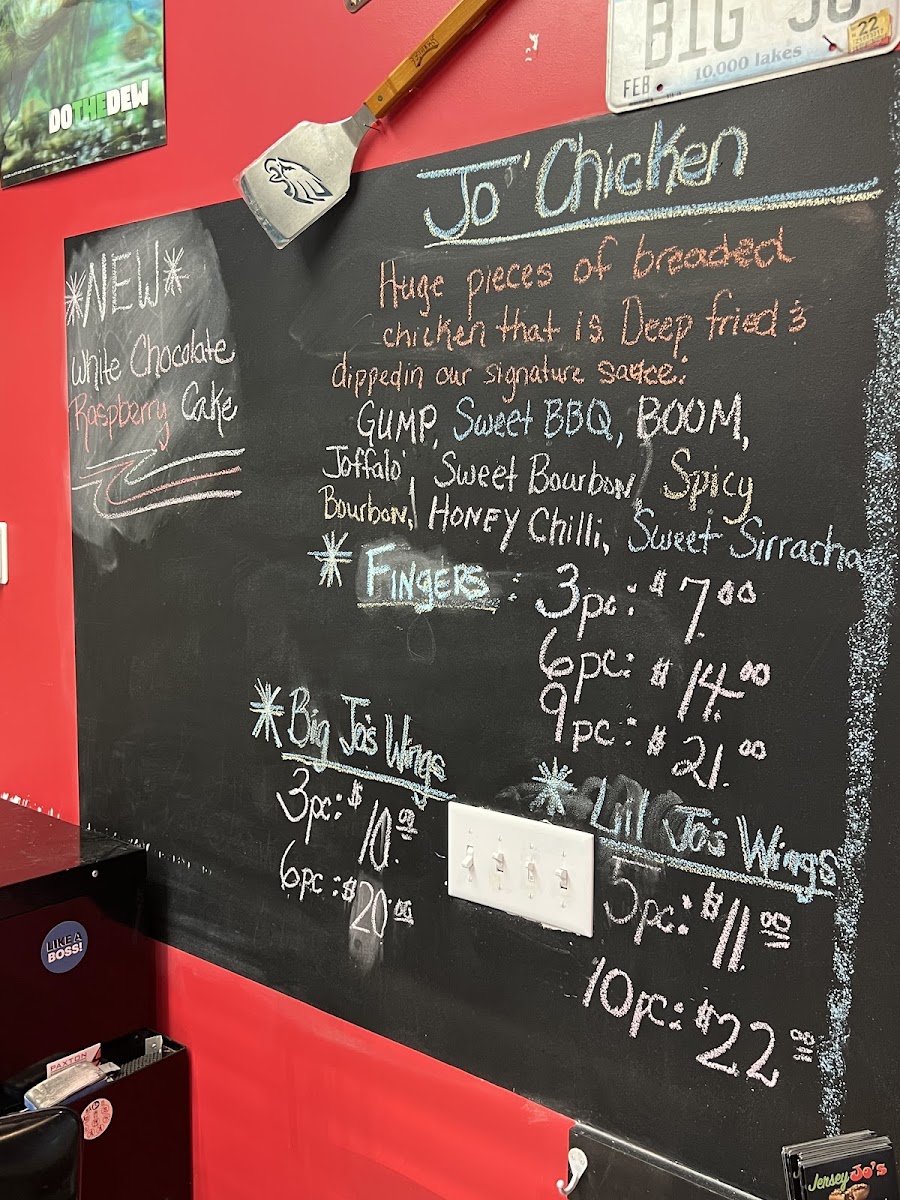 DOTHEDEW
EAGLES
BIG JO
22
FEB
10,000 lakes
Jo' Chicken
*NEW*
White Chocolate
Raspberry Cake
Huge pieces of breaded
chicken that is Deep fried &
dipped in our signature sauce:
GUMP, Sweet BBQ, BOOM,
Joffalo, Sweet Bourbon, Spicy
Bourbon, HONEY Chilli, Sweet Sirracha
* FINGERS : 3pc: $7.00
6pc: $14.00
9pc: $21.00
* Big Jo's Wings
3pc: $10.00
6pc: $20.00
* Lill Jo's Wings
5pc: $11.00
10pc: $22.00
LIKE A
BOSS!
PAXTON
Jersey Jo's